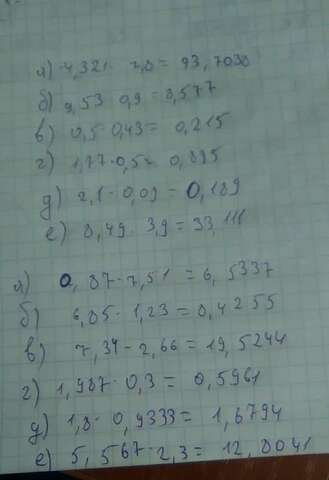 а) 4,321 · 7,8 = 93,7038
б) 9,53 · 0,9 = 8,577
в) 0,5 · 0,43 = 0,215
г) 1,77 · 0,5 = 0,895
д) 2,1 · 0,09 = 0,189
е) 8,49 · 3,9 = 33,111
а) 0,87 · 7,51 = 6,5337
б) 6,85 · 1,23 = 8,4255
в) 7,34 · 2,66 = 19,5244
г) 1,987 · 0,3 = 0,5961
д) 1,8 · 0,9333 = 1,6794
е) 5,567 · 2,3 = 12,8041